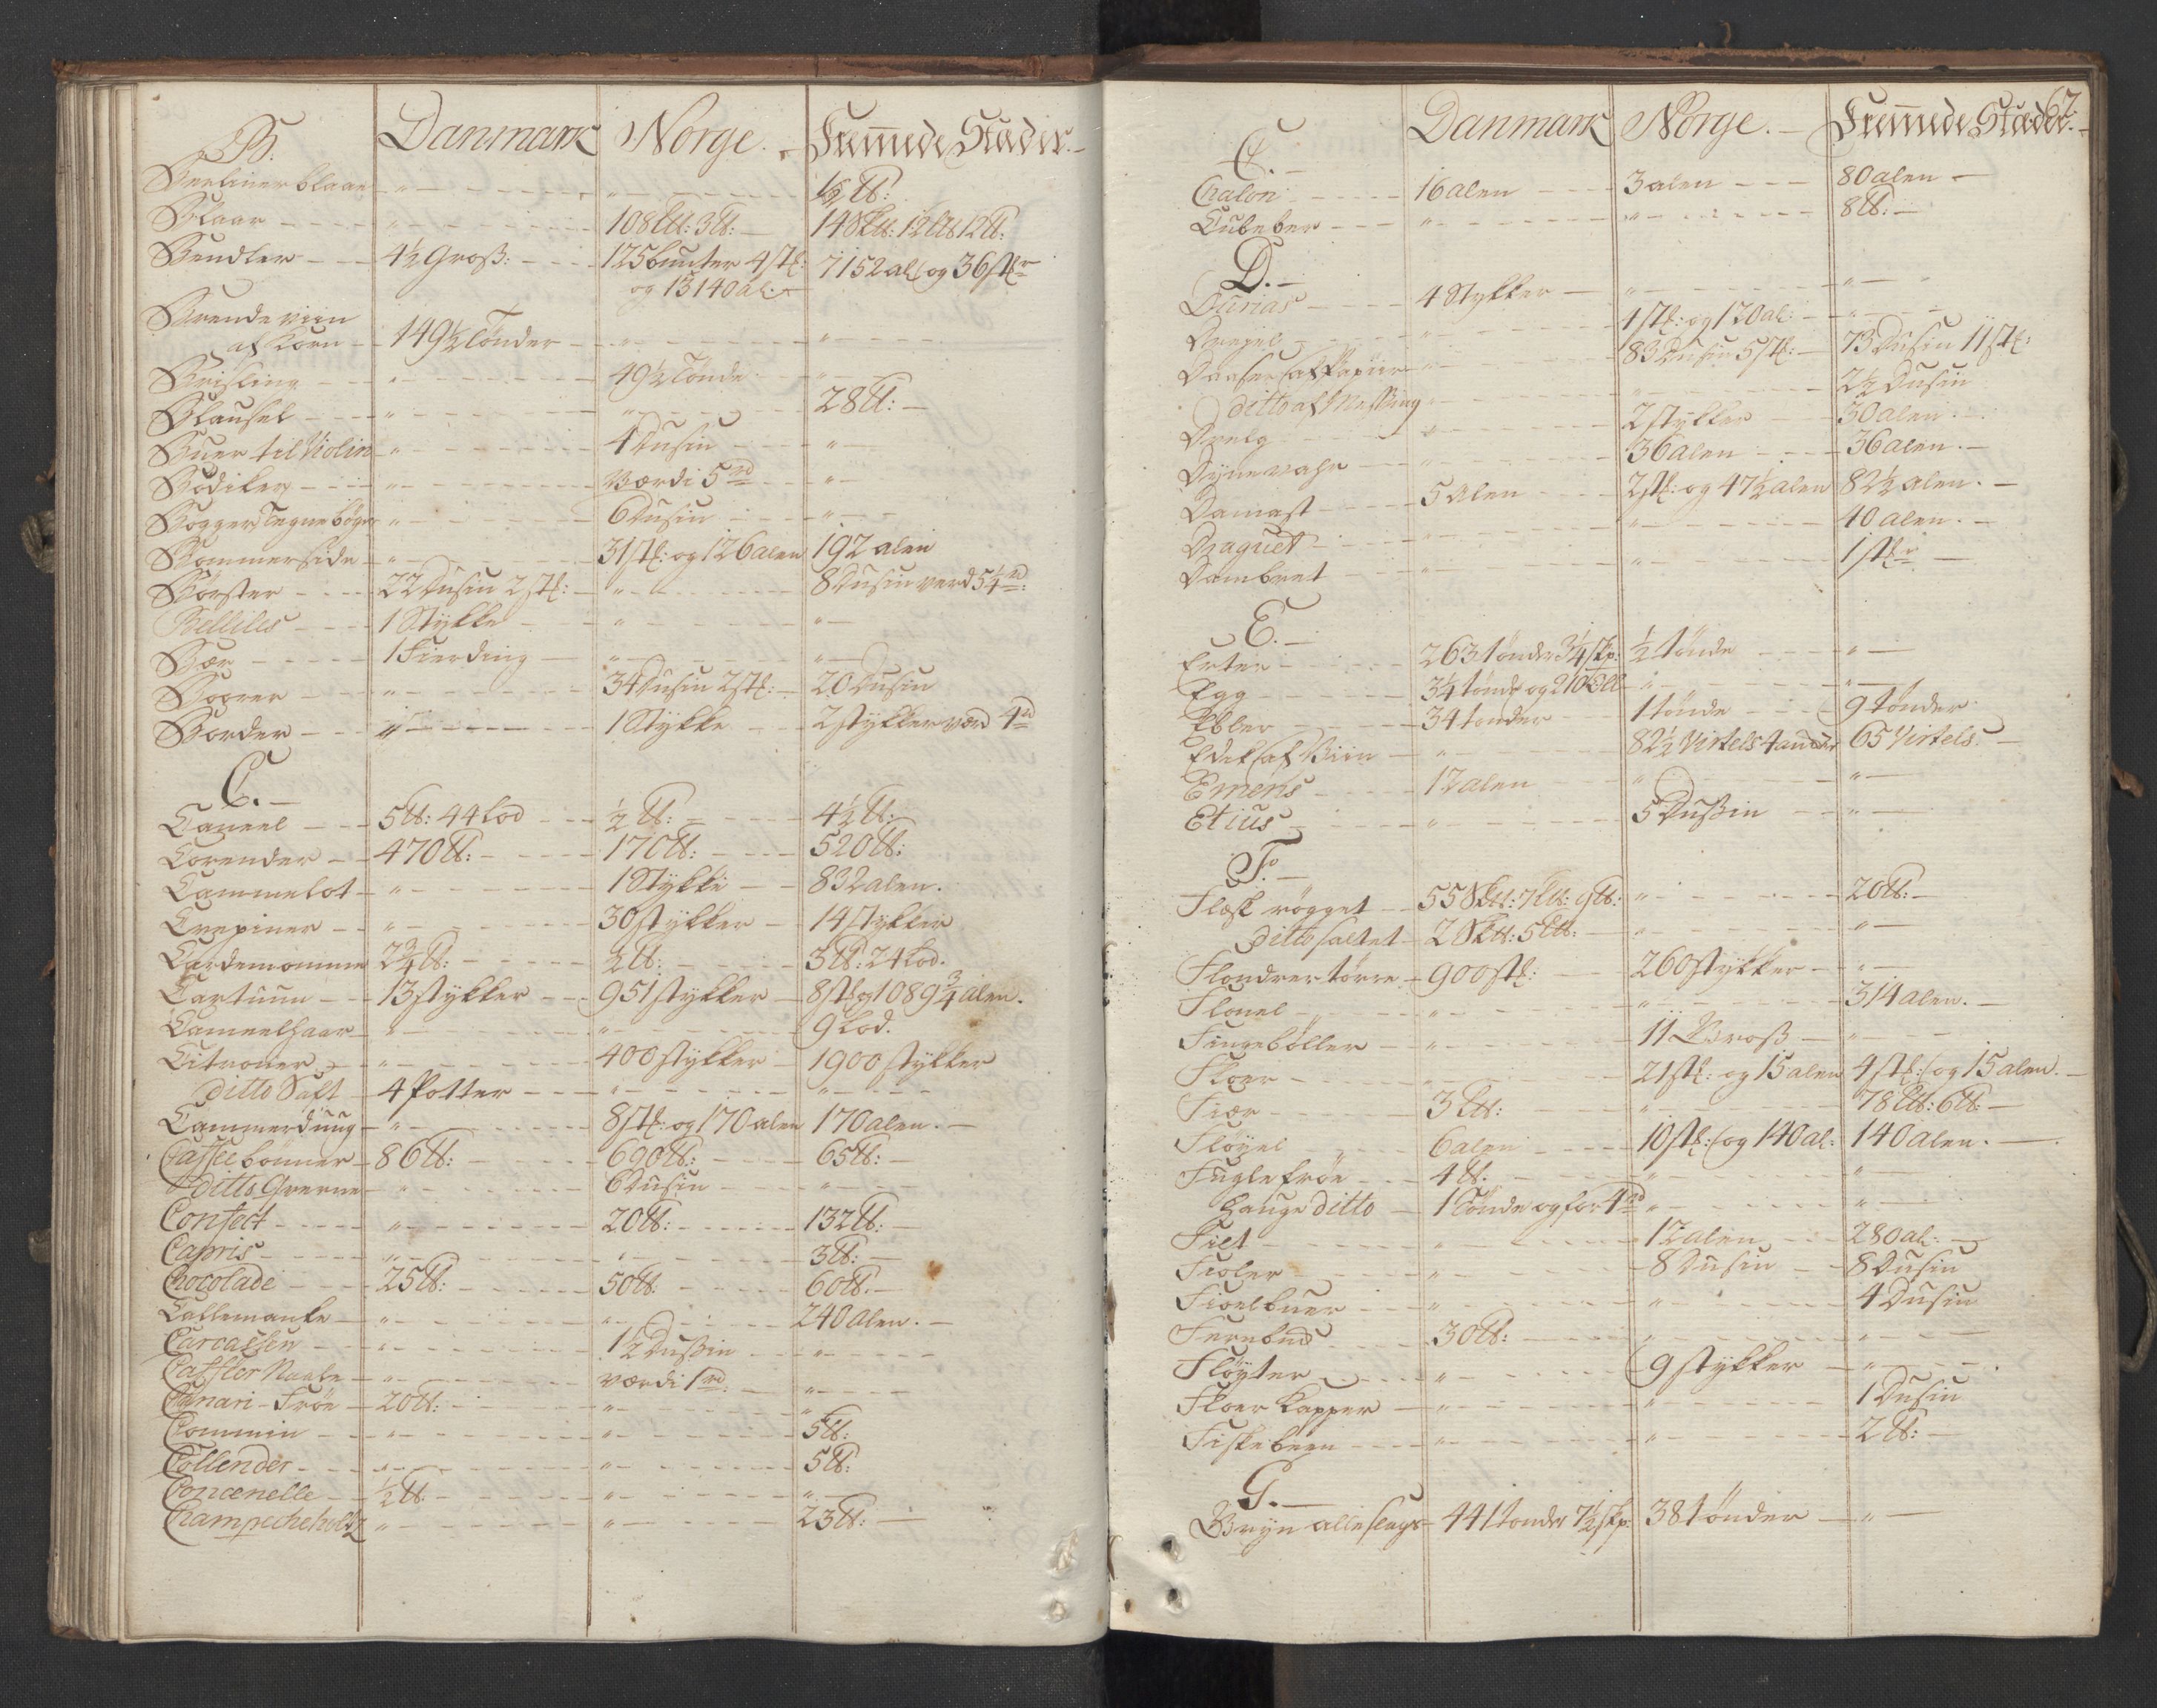 B. Danmark Norge. Fremmede Stæder.
Berliner blaae " " 1/2 ℔:
Blaar " 108 L℔: 3℔: 14 Sk℔: 12 L℔ 12℔:
Bendler 4½ Groß: 125 bunter 4 stk: 7152 al: og 36 stkr
og 13140 al:
Brendeviin
af Korn 149½ Tønder " "
Brisling " 49½ Tønde "
Blausel " " 28℔:
Buer til Violin " 4 Dusin "
Bødiker " Værdi 5 rd "
Bogger Tegnebøger " 6 Dusin "
Bommerside " 31 stk: og 126 alen 192 alen
Børster 22 Dusin 2 stk: " 8 Dusin verd 5¼ rd:
Bellilis 1 Stykke " "
Bær 1 Fierding " "
Boorer " 34 Dusin 2 stk: 20 Dusin
Border " 1 Stykke 2 stykker værd 4 rd
C.
Caneel 5℔: 44 Lod ½ ℔: 4½ ℔:
Corender 470℔: 170℔: 520℔:
Cammelot " 1 Stykke 832 alen.
Crepiner " 30 stykker 14 stykker
Cardemomme 2¾ ℔: ½ ℔: 3℔: 24 Lod.
Cartuun 13 stykker 951 stykker 8 stk og 1089¾ alen.
Cameelhaar " " 9 Lod.
Citroner " 400 stykker 1900 stykker
ditto Saft 4 Potter " "
Cammerdüüg " 8 stk: og 170 alen 170 alen.
Caffee bønner 86℔: 690℔: 65℔:
ditto Qverne " 6 Dusin "
Confect " 20℔: 132℔:
Capris " " 3℔:
Chocolade 25℔: 50℔ 60℔.
Callemanke " " 240 alen.
Carcassen " 1½ Dußin "
værdi 1 rd: "
Canari-Frøe 20℔: " "
Commin " " 5℔:
Collender " " 5℔:
Concenelle ½ ℔ " "
Champecheholtz " " 23℔:
C. Danmark Norge. Fremmede Stæder. 67.
Chalon 16 alen 3 alen 80 alen
Cubeber " " 8℔:
D.
Durias 4 Stykker " "
Drejel " 1 stk: og 120 al: "
Daaser af Papiir " 83 Dusin 5 stk: 73 Dusin 11 stk:
ditto af Messing " " 2½ Dusin
Drelg " 2 stykker 30 alen.
Dynevahr " 36 alen 36 alen.
Damast 5 alen 2 stk: og 47½ alen 82½ alen.
Draguet " " 40 alen.
Dambret " " 1 stkr
E.
Erter 263 tønder 3¼ skp: ½ tønde "
Egg 3¼ tønde og 210 Oll " "
Ebler 34 tønder 1 tønde 9 tønder
Edek af Viin " 82½ Virtels 4 ancker 65 Virtels.
Emens 12 alen " "
Etius " 5 Dußin "
F.
Flesk røgget 55 Sk℔: 7 L℔: 9℔: " 20℔:
Ditto saltet 2 Sk℔: 5 L℔: " "
Flondrer tørre 900 stk: 260 stykker "
Flonel " " 314 alen.
Fingebøller " 11 Groß "
Floer " 21 stk: og 15 alen 4 stk: og 15 alen.
Fiær 3 L℔: " 78 L℔: 6℔:
Fløyel 6 alen 10 stk: og 140 al: 140 alen.
Fuglefrøe 4℔. " "
Hauge ditto 1 Tønde og for 4 rd " "
Filt " 12 alen 280 al:
Fioler " 8 Dusin 8 Dusin
Fioelbuer " " 4 Dusin
Fernbuk 30℔: " "
Fløyter " 9 stykker "
Floer Kapper " " 1 Dusin
Fiskebeen " " 2℔:
G.
Gryn alle slags 441 tønder 7½ skp: 38 tønder "